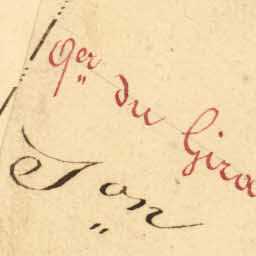 qer du Gira
Son